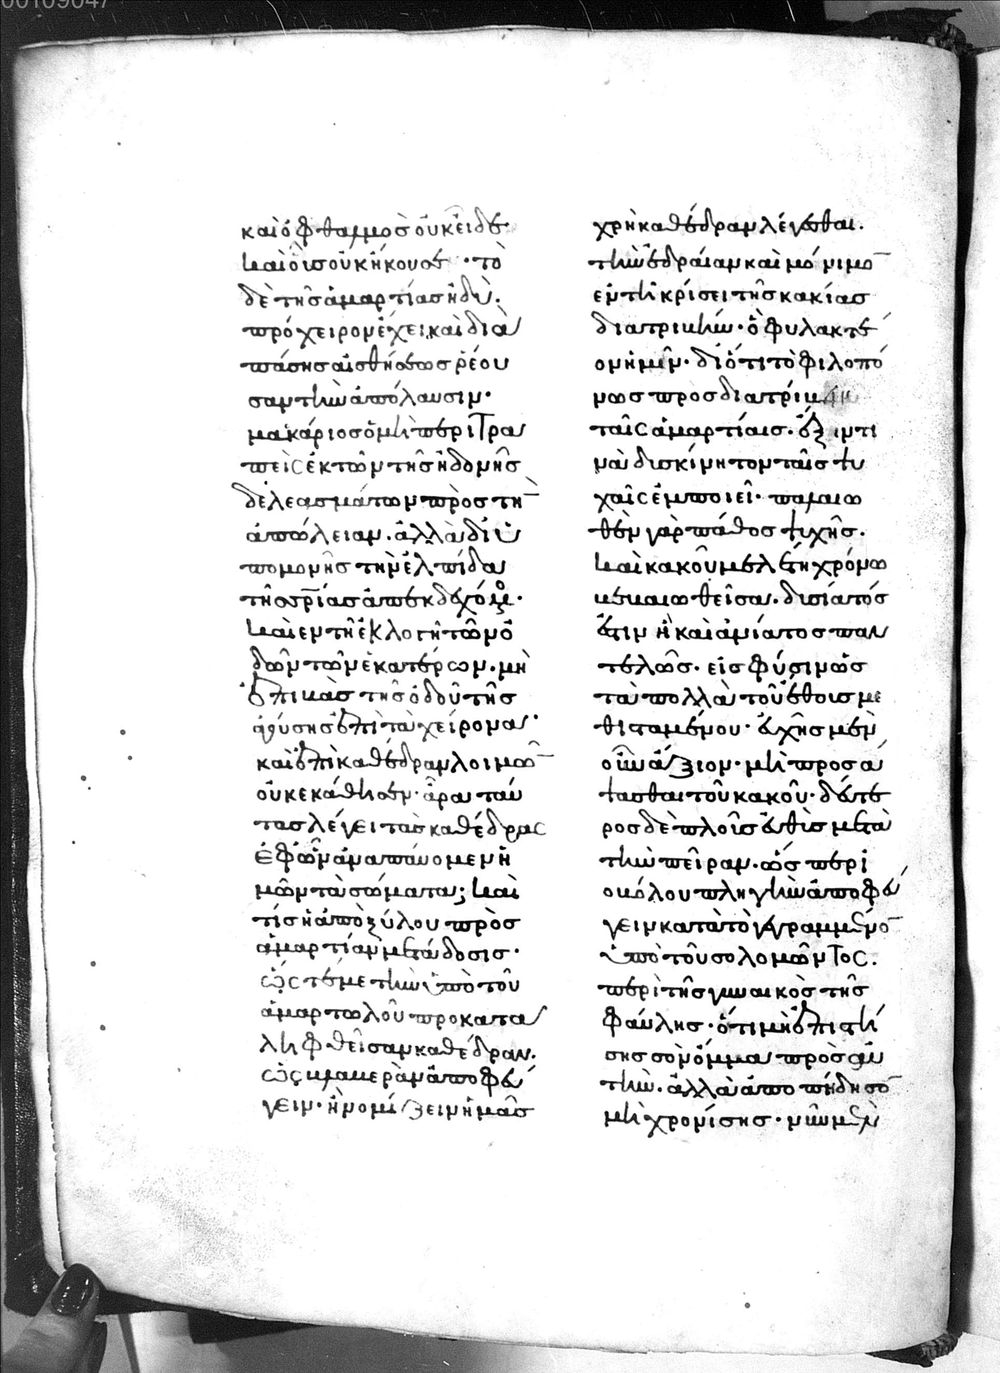 καὶ ὀφθαλμὸς οὐκ εἶδε·
καὶ οὖς οὐκ ἤκουσε· τὸ
δὲ τῆς ἁμαρτίας ἡδὺ.
πρόχειρον ἔχει καὶ διὰ
πάσης αἰσθήσεως ῥέου
σαν τὴν ἀπόλαυσιν·
μακάριος ὁ μὴ περιτρα
πεὶς ἐκ τῶν τῆς ἡδονῆς
δελεασμάτων πρὸς τὴν
ἀπώλειαν. ἀλλὰ δι' ὑ
πομονῆς τὴν ἐλπίδα
τῆς σρίας ἀπεκδεχόμενος·
καὶ ἐν τῇ ἐκλογῇ τῶν ὁ
δῶν τῶν ἑκατέρων. μὴ
ἐπιβὰς τῆς ὁδοῦ τῆς
ἀγούσης ἐπὶ τὰ χείρονα·
καὶ ἐπὶ καθέδραν λοιμῶν
οὐκ ἐκάθισεν· ἆρα ταύ
τας λέγει τὰς καθέδρας
ἐφ' ὧν ἀναπαύομεν ἡ
μῶν τὰ σώματα; καὶ
τίς ἡ ἀπὸ ξύλου πρὸς
ἁμαρτίαν μετάδοσις·
ὥς τέ με τὴν ὑπὸ τοῦ
ἁμαρτωλοῦ προκατα
ληφθεῖσαν καθέδραν.
ὡς βλαβερὰν ἀποφεύ
γειν· ἢ νομίζειν ἡμᾶς
χρὴ καθέδραν λέγεσθαι.
τὴν ἑδραίαν καὶ μόνιμον
ἐν τῇ κρίσει τῆς κακίας
διατριβήν· ὃ φυλακτέ
ον ἡμῖν· διότι τὸ φιλοπό
νως προσδιατρίβειν
ταῖς ἁμαρτίαις. ἕξιν τι
νὰ δυσκίνητον ταῖς ψυ
χαῖς ἐμποιεῖ· παλαιω
θὲν γὰρ πάθος ψυχῆς.
καὶ κακοῦ μελέτη χρόνω
βεβαιωθεῖσα. δυσίατός
ἐστιν ἢ καὶ ἀνίατος παν
τελῶς. εἰς φύσιν ὡς
τὰ πολλὰ τοῦ ἔθους με
θισταμένου· εὐχῆς μὲν
οὖν ἄξιον. μὴ προσά
ψασθαι τοῦ κακοῦ· δεύτε
ρος δὲ πλοῦς εὐθὺς μετὰ
τὴν πεῖραν. ὡς περὶ
βόλου πληγὴν ἀποφεύ
γειν κατὰ τὸ γεγραμμένον
ὑπὸ τοῦ σολομῶντος.
περὶ τῆς γυναικὸς τῆς
φαύλης· ὅτι μὴ ἐπιστή
σης σὸν ὄμμα πρὸς αὐ
τήν. ἀλλὰ ἀποπήδησον
μὴ χρονίσης· νῦν μὲν